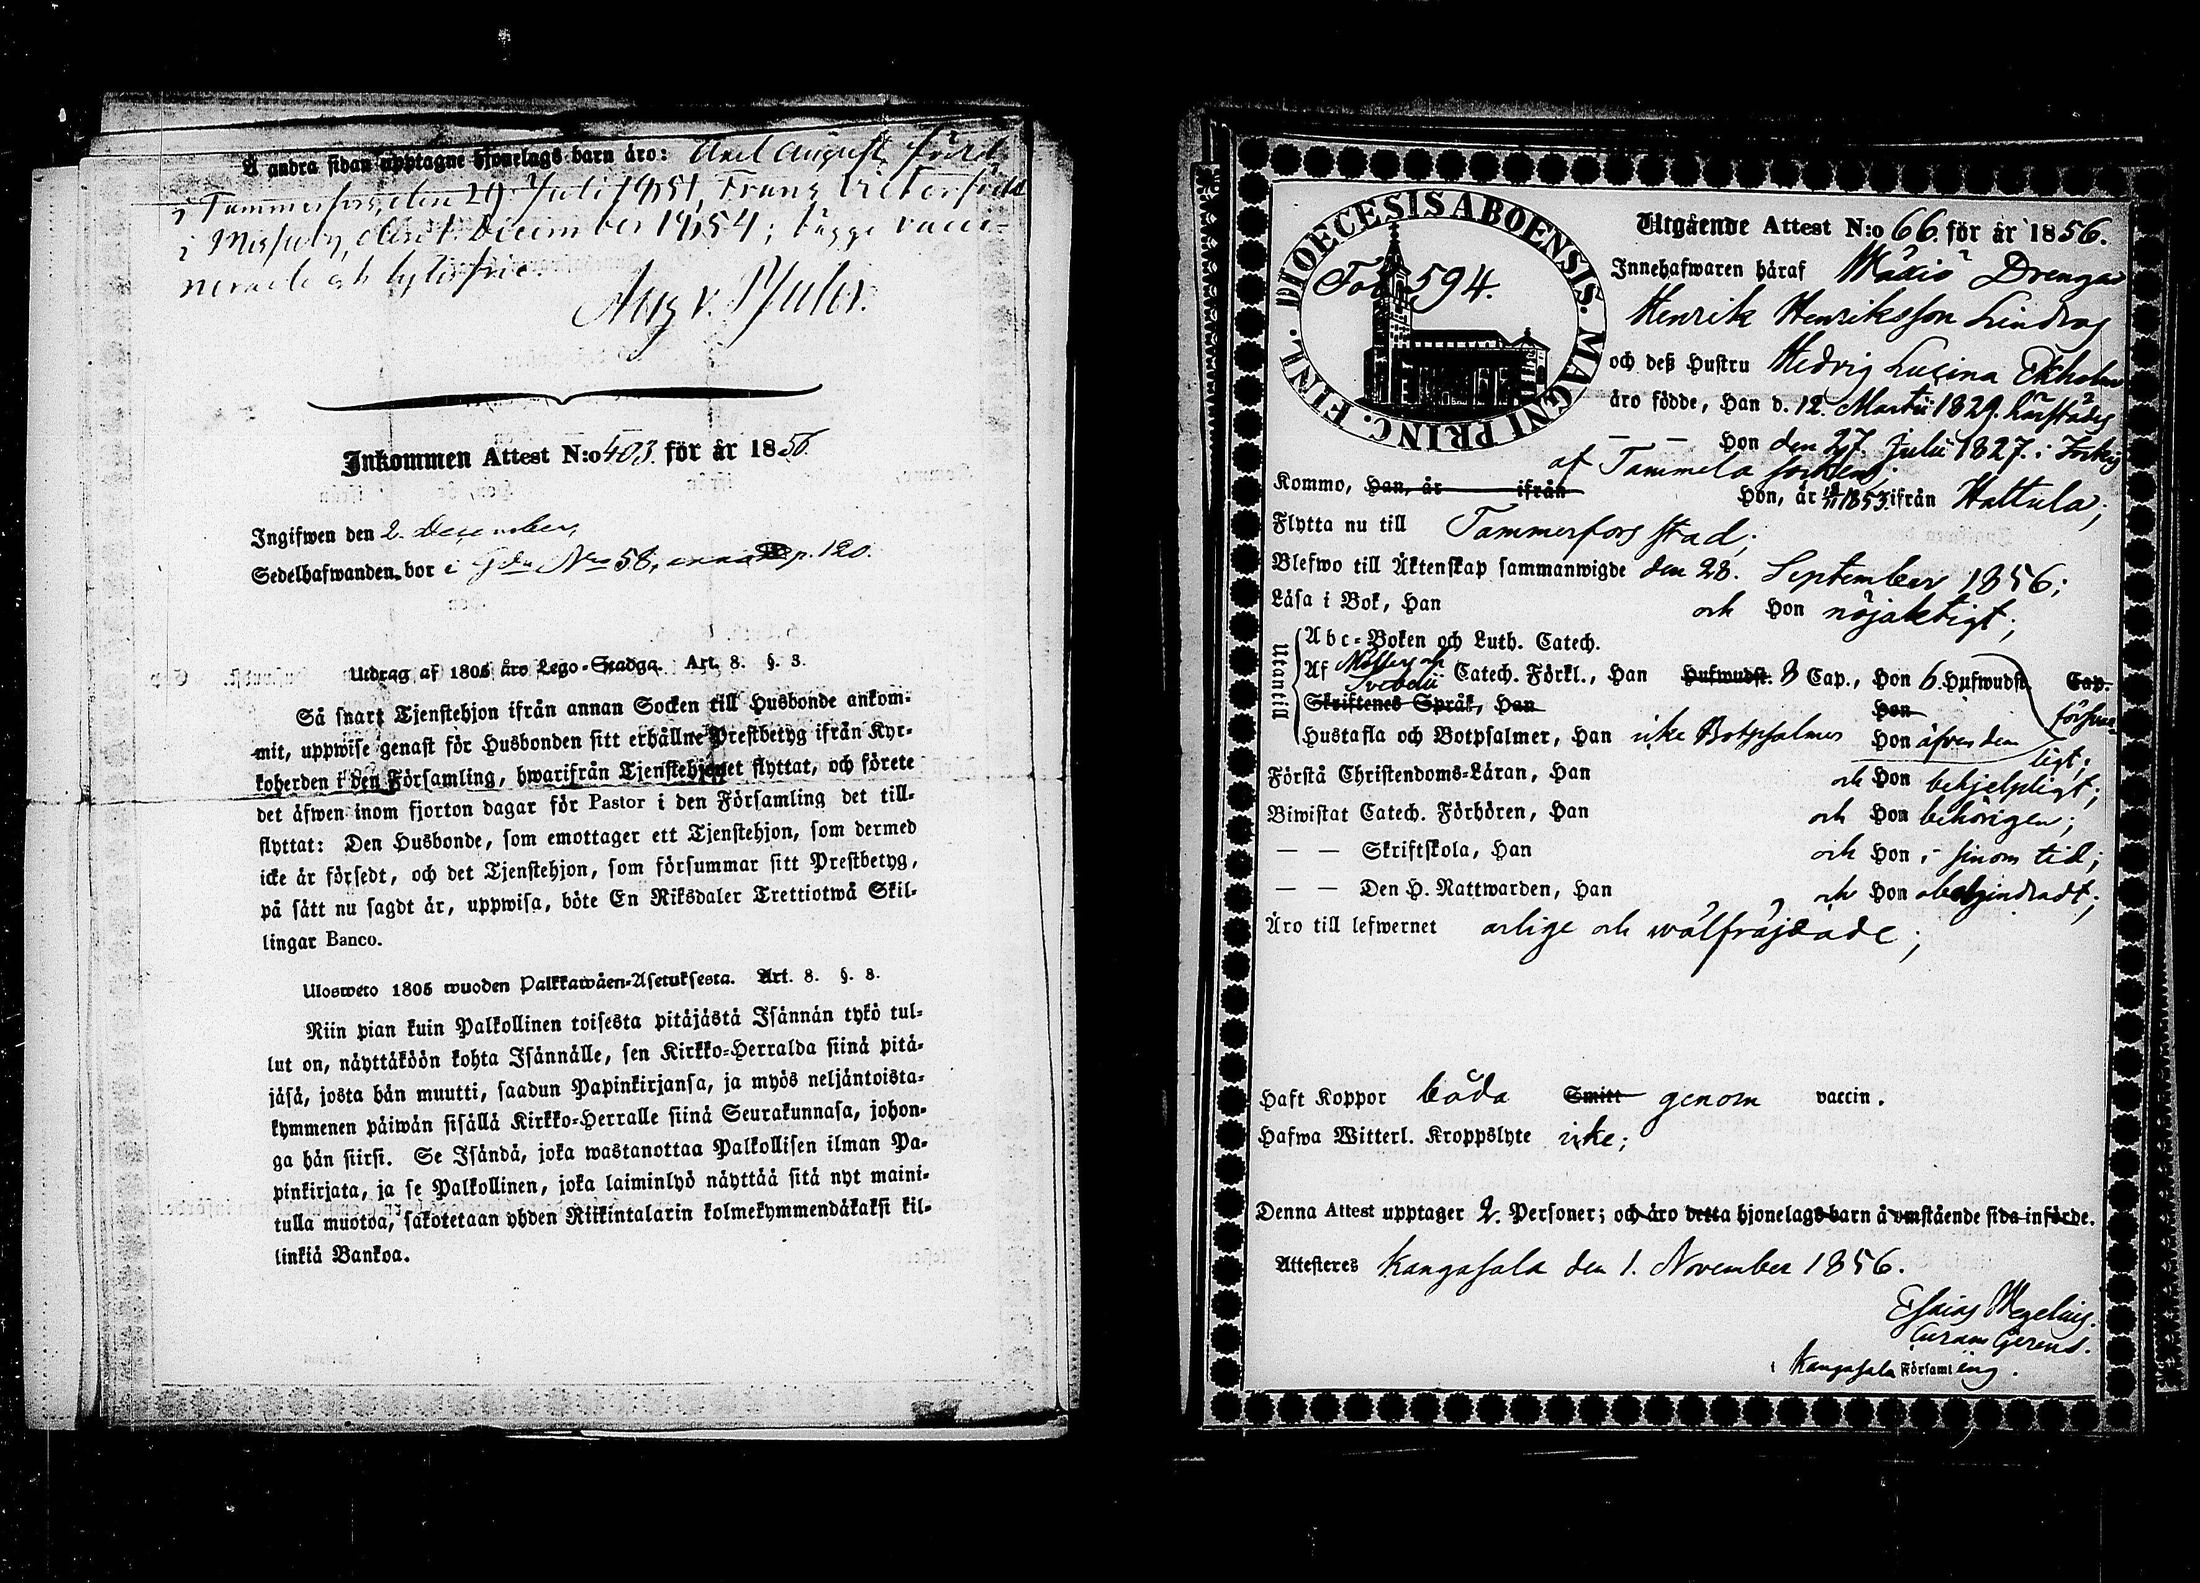 Å andra sidan upptagne hjonelags barn äro: Axel August född
i Tammerfors, den 29 Juli 1851, Franz Victor född
i Messuby, den 1. December 1854; bägge vacci-
nerade och lytesfrie.
Aug v. Pfaler.
Inkommen Attest N:o 403. för år 1856.
Ingifwen den 2. December,
Sedelhafwanden bor i Gdn Nro 58, p. 120.
Utdrag af 1805 års Lego-Stadga. Art. 8. §. 3.
Så snart Tjenstehjon ifrån annan Socken till Husbonde ankom-
mit, uppwise genast för Husbonden sitt erhållne Prestbetyg ifrån Kyr-
koherden i den Församling, hwarifrån Tjenstehjonet flyttat, och förete
det äfwen inom fjorton dagar för Pastor i den Församling det till-
flyttat: Den Husbonde, som emottager ett Tjenstehjon, som dermed
icke är försedt, och det Tjenstehjon, som försummar sitt Prestbetyg,
på sätt nu sagdt är, uppwisa, böte En Riksdaler Trettiotwå Skil-
lingar Banco.
Ulosweto 1805 wuoden Palkkawäen-Asetuksesta. Art. 8. §. 3.
Niin pian kuin Palkollinen toisesta pitäjästä Isännän tykö tul-
lut on, näyttäköön kohta Isännälle, sen Kirkko-Herralda siinä pitä-
jäsä, josta hän muutti, saadun Papinkirjansa, ja myös neljäntoista-
kymmenen päiwän sisällä Kirkko-Herralle siinä Seurakunnasa, johon-
ga hän siirsi. Se Isändä, joka wastanottaa Palkollisen ilman Pa-
pinkirjata, ja se Palkollinen, joka laiminlyö näyttää sitä nyt maini-
tulla muotoa, sakotetaan yhden Riikintalarin kolmekymmendäkaksi kil-
linkiä Bankoa.
DIOECESIS ABOENSIS. MAGNI PRINC. FINL.
Fol. 594.
Utgående Attest N:o 66. för år 1856.
Innehafwaren häraf Wäxiö Drengen
Henrik Henriksson Lindroos
och deß Hustru Hedvig Lucina Ekholm
äro födde, Han d. 12. Martii 1829. härstädes
— — Hon den 27. Julii 1827. i Jockis
af Tammela socken;
Kommo, Han, år ifrån Hon, år 1853. ifrån Hattula;
Flytta nu till Tammerfors stad;
Blefwo till Äktenskap sammanwigde den 28. September 1856;
Läsa i Bok, Han och Hon nöjaktigt;
Utantill
Abc-Boken och Luth. Catech.
Af Möllers och Svebelii Catech. Förkl., Han Hufwudst. 8 Cap., Hon 6. Hufwudst. Cap.
Skriftenes Språk, Han Hon försvar-
Hustafla och Botpsalmer, Han icke Botpsalmer Hon äfven dem ligt;
Förstå Christendoms-Läran, Han och Hon behjelpligt;
Biwistat Catech. Förhören, Han och Hon behörigen;
— — Skriftskola, Han och Hon i sinom tid;
— — Den H. Nattwarden, Han och Hon obehindradt;
Äro till lefwernet ärlige och wälfräjdade;
Haft Koppor båda Smitt genom vaccin.
Hafwa Witterl. Kroppslyte icke;
Denna Attest upptager 2. Personer; och äro detta hjonelags barn å omstående sida införde.
Attesteres Kangasala den 1. November 1856.
Esaias Wegelius.
Curam Gerens.
i Kangasala Församling.